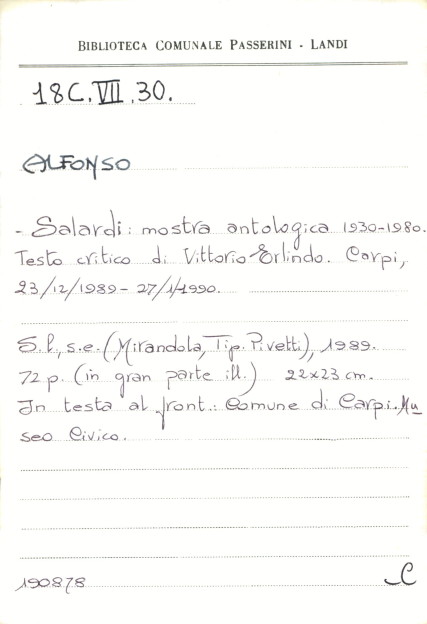 BIBLIOTECA COMUNALE PASSERINI - LANDI
18C.VII.30.
ALFONSO
- Salardi: mostra antologica 1930-1980.
Testo critico di Vittorio Erlindo. Carpi,
23/12/1989 - 27/1/1990.
S.l., s.e. (Mirandola, Tip. Pivetti), 1989.
72 p. (in gran parte ill.) 22x23 cm.
In testa al front.: Comune di Carpi. Mu
seo Civico.
190878 C